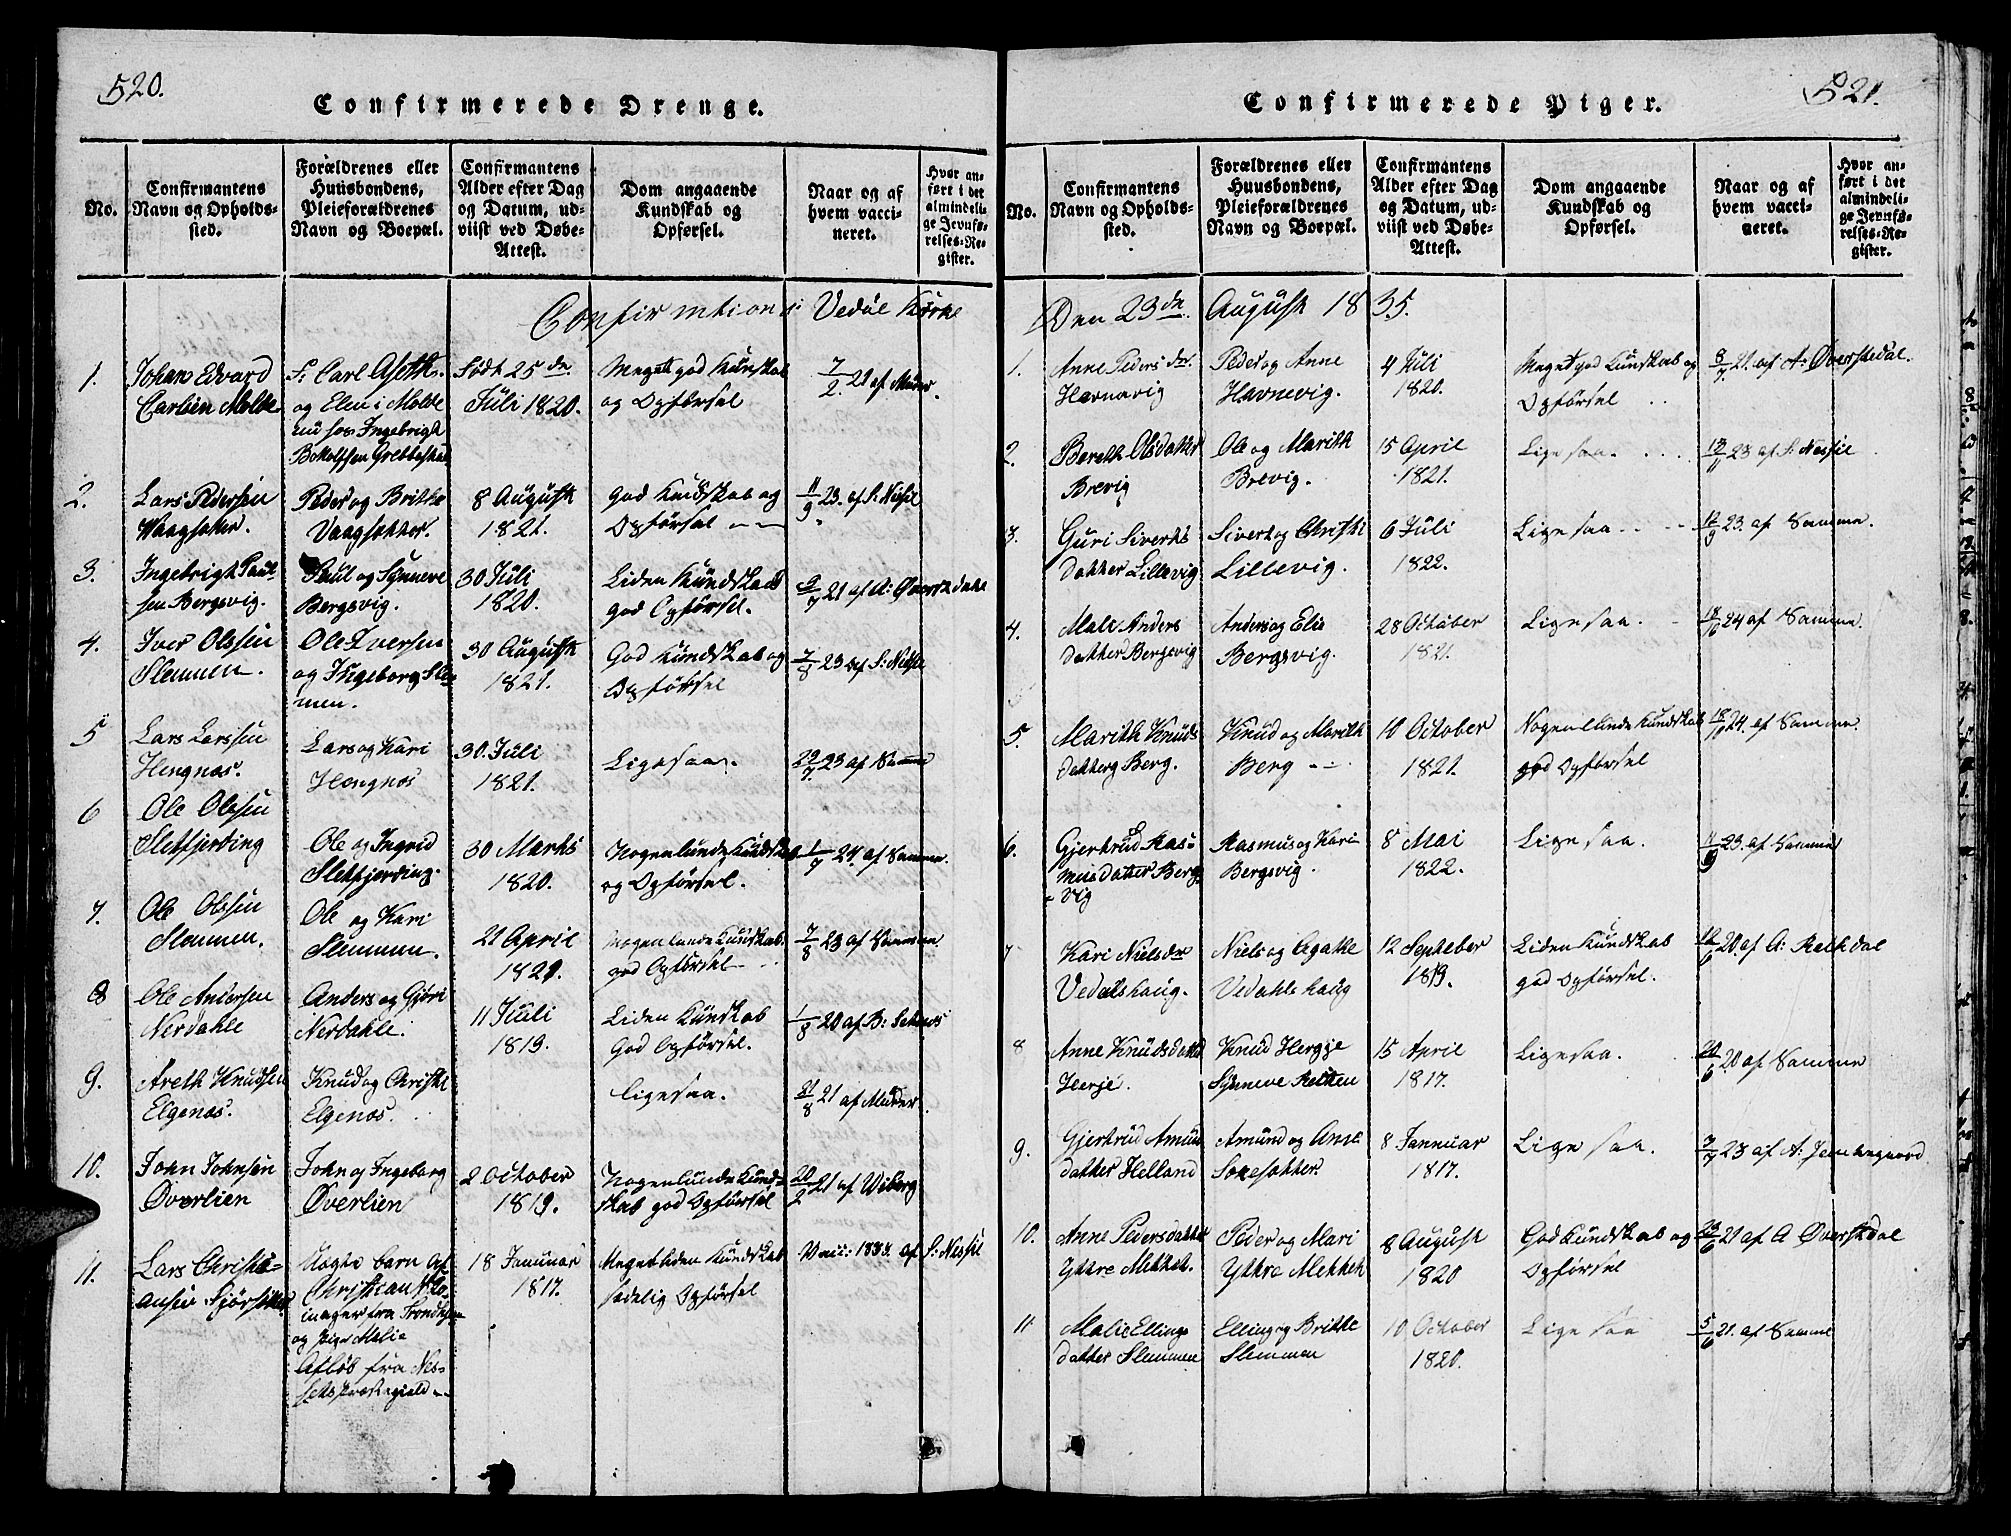 520.
Confirmerede Drenge.
No.
Confirmantens
Navn og Opholds-
sted.
Forældrenes eller
Huusbondens,
Pleieforældrenes
Navn og Boepæl.
Confirmantens
Alder efter Dag
og Datum, ud-
viist ved Døbe-
Attest.
Dom angaaende
Kundskab og
Opførsel.
Naar og af
hvem vacci-
neret.
Hvor an-
ført i det
almindeli-
ge Jevnfø-
relses-Re-
gister.
Confirmation i Vedøe Kirke
1.
Johan Edvard
Carlsen Molde
S: Carl Aseth
og Elen i Molde
nu hos Ingebrigt
Født 25de
Juli 1820.
Meget god Kunskab
og Opførsel
7/2 21 af Møder.
2.
Lars Pedersen
Waagsæter.
Peder og Brithe
Vaagsætter.
8 August
1821.
God Kundskab og
Opførsel
11/9 23. af S: Nesje
3.
Ingebrigt Paul-
sen Bergsvig.
Paul og Synneve
Bergsvig.
30 Juli
1820.
Liden Kundskab
god Opførsel.
9/7 21 af A: Øverstedahl
4.
Iver Olssen
Slemmen.
Ole Iversen
og Ingeborg Sle-
men.
30 August
1821.
God Kundskab og
Opførsel
7/8 23 af S: Nesje
5
Lars Larssen
Hengnæs.
Lars og Kari
Hengnæs
30. Juli
1821.
Ligesaa.
29/7 23 af Samme
6
Ole Olssen
Sletfjerding
Ole og Ingrid
Sletfjerding.
30 Marts
1820.
Nogenlunde Kundskab
og Opførsel.
1/7 24. af Samme.
7.
Ole Olssen
Slemmen.
Ole og Kari
Slemmen.
21 April
1821.
Nogenlunde Kundskab
god Opførsel
7/8 23 af Samme
8
Ole Andersen
Nerdahle
Anders og Gjøri
Nerdahle.
11 Juli
1819.
Liden Kunskab
God Opførsel.
1/8 20 af B: Setnæs
9.
Areth Knudsen
Elgenæs.
Knud og Christi
Elgenæs.
ligesaa.
21/8 21 af Møder
10.
John Johnsen
Øverlien
John og Ingeborg
Øverlien
2 October
1819.
Nogenlunde Kund-
skab god Opførsel
20/2 21 af Wiberg
11.
Lars Christi-
ansen Sjørsetter
Uægte barn af
Christian
fra Trondhjem
og Pige Malie
fra Nes-
sets Præstegield
18 Januar
1817.
Meget liden Kundskab
sædelig Opførsel
Vacc: 1835. af S: Nessje
521.
Confirmerede Piger.
No.
Confirmantens
Navn og Opholds-
sted.
Forældrenes eller
Huusbondens,
Pleieforældrenes
Navn og Boepæl.
Confirmantens
Alder efter Dag
og Datum, ud-
viist ved Døbe-
Attest.
Dom angaaende
Kundskab og
Opførsel.
Naar og af
hvem vacci-
neret.
Hvor an-
ført i det
almindeli-
ge Jevnfø-
relses-Re-
gister.
Den 23de August 1835.
1.
Anne Peders dr.
Havnevig
Peder og Anne
Havnevig.
4 Juli
1820.
Meget god Kunskab og
Opførsel
8/7 21. af A: Øverstedal.
2.
Bereth Olsdatter
Brevig
Ole og Marith
Brevig.
15 April
1821.
Lige saa.
23 af S: Nessje
3.
Guri Siverts
datter Lillevig
Sivert og Christi
Lillevig.
6 Juli
1822.
Lige saa
12/9 23. af Samme.
4.
Mali Anders
datter Bergsvig
Anders og Elie
Bergsvig.
28 October
1821.
Lige saa.
18/10 24 af Samme.
5.
Marith Knuds
datter Berg.
Knud og Marith
Berg
10 October
1821.
Nogenlunde Kundskab
god Opførsel
18/10 24. af Samme.
6.
Gjertrud Ras-
musdatter Berg
vig
Rasmus og Kari
Bergsvig.
8 Mai
1822.
Lige saa
11/9 23. af Samme
7
Kari Niels dr
Vedalshaug.
Niels og Agathe
Vedahlshaug
12 Septeber
1819.
Liden Kundskab
god Opførsel.
12/6 20. af A: Rethdal
8
Anne Knudsdatter
Herje.
Knud Hergje
Synneve Rethen
15 April
1817.
Ligesaa.
20/6 20 af Samme
9.
Gjertrud Amun
datter Helland
Amund og Ane
Sore sætter.
8 Januar
1817.
Lige saa.
7/7 23 af A:
10.
Anne Pedersdatter
Yttre Mettet.
Peder og Mari
Yttre Mettet
8 August
1820
God Kundskab og
Opførsel
23/6 21 af A Øverstdal
11
Malie Ellings
datter Slemmen
Elling og Brithe
Slemmen
10 October
1820.
Lige saa
5/6 21. af Samme